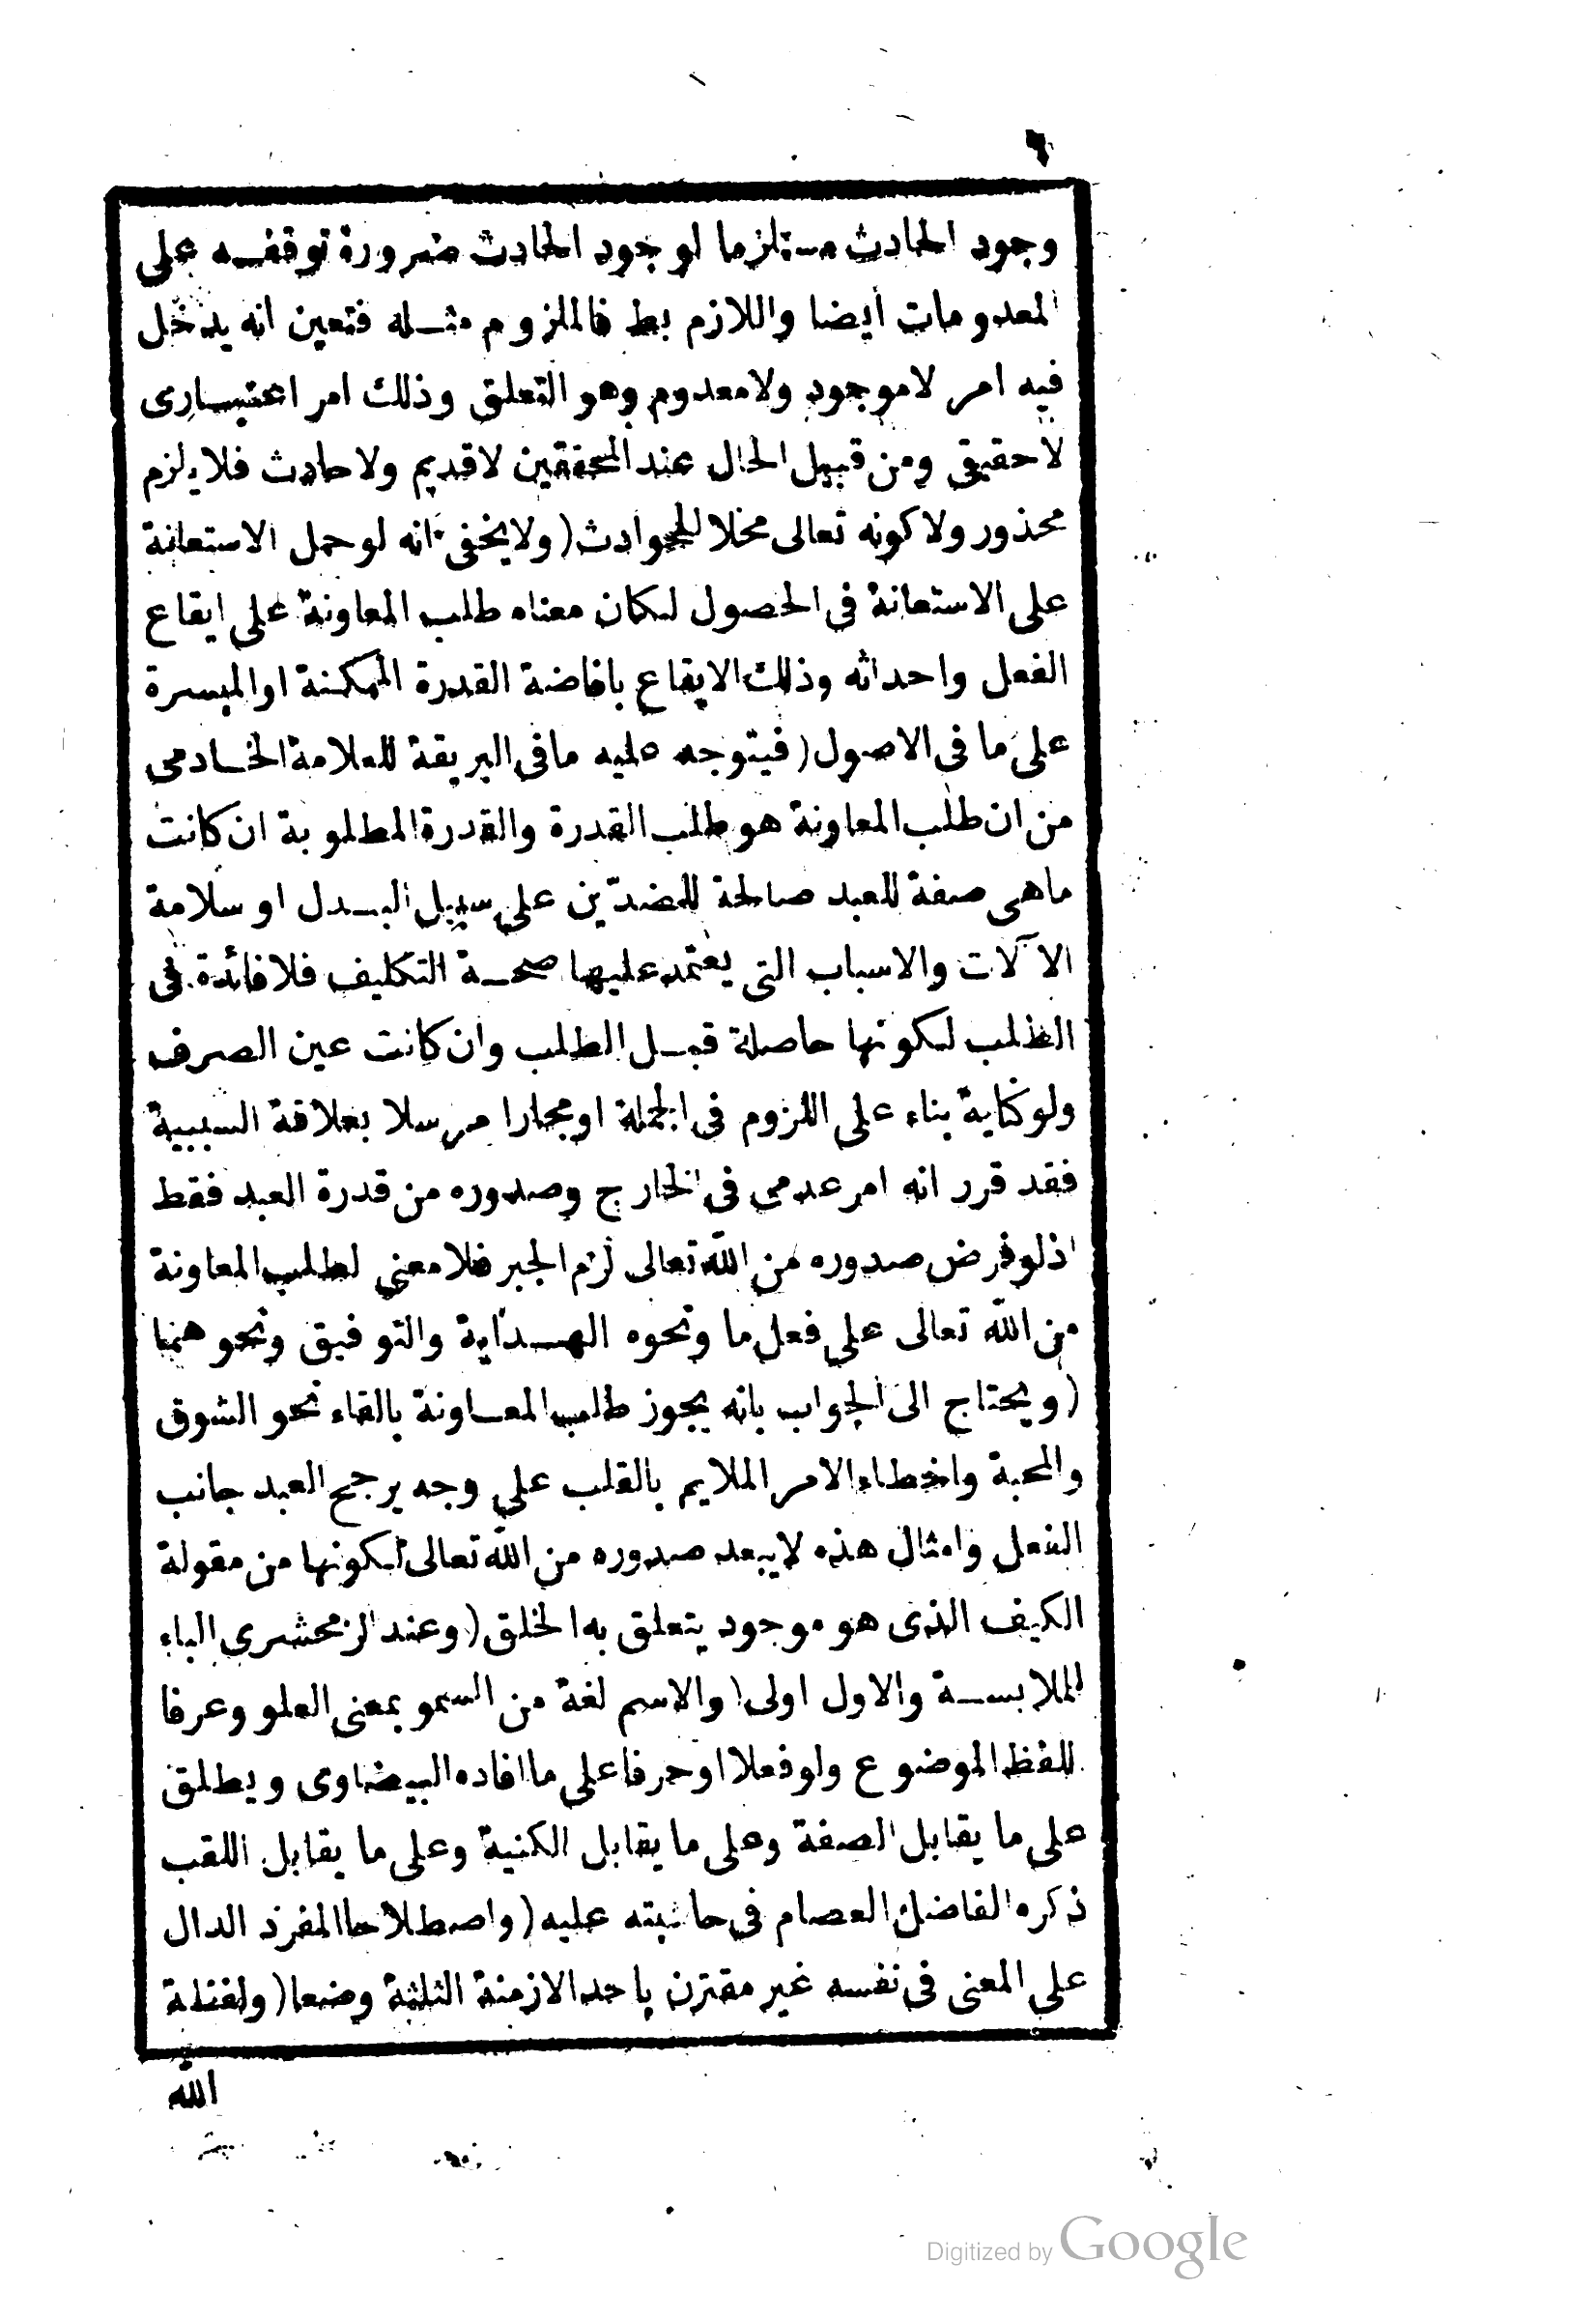 ٦
وجود الحادث مستلزما لوجود الحادث ضرورة توقفه على
المعدومات أيضا واللازم بط فالملزوم مثله فتعين انه يدخل
فيه امر لاموجود ولامعدوم وهو التعلق وذلك امر اعتبارى
لاحقيقى ومن قبيل الحال عند المحققين لاقديم ولاحادث فلايلزم
محذور ولاكونه تعالى محلا للحوادث (ولايخفى انه لوحمل الاستعانة
على الاستعانة فى الحصول لكان معناه طلب المعاونة على ايقاع
الفعل واحداثه وذلك الايقاع بافاضة القدرة الممكنة اوالميسرة
على ما فى الاصول (فيتوجه عليه مافى البريقة للعلامة الخادمى
من ان طلب المعاونة هو طلب القدرة والقدرة المطلوبة ان كانت
ماهى صفة للعبد صالحة للضدّين على سبيل البدل او سلامة
الآلات والاسباب التى يعتمد عليها صحة التكليف فلافائدة فى
الطلب لكونها حاصلة قبل الطلب وان كانت عين الصرف
ولو كناية بناء على اللزوم فى الجملة اومجازا مرسلا بعلاقة السببية
فقد قرر انه امر عدمى فى الخارج وصدوره من قدرة العبد فقط
اذلوفرض صدوره من الله تعالى لزم الجبر فلامعنى لطلب المعاونة
من الله تعالى على فعل ما ونحوه الهداية والتوفيق ونحو همنا
(ويحتاج الى الجواب بانه يجوز طلب المعاونة بالقاء نحو الشوق
والمحبة واخطاء الامر الملايم بالقلب على وجه يرجح العبد جانب
الفعل وامثال هذه لايبعد صدوره من الله تعالى لكونها من مقولة
الكيف الذى هو موجود يتعلق به الخلق (وعند الزمخشرى الباء
للملابسة والاول اولى (والاسم لغة من السمو بمعنى العلو وعرفا
للفظ الموضوع ولوفعلا اوحرفا على ماافاده البيضاوى ويطلق
على ما يقابل الصفة وعلى ما يقابل الكنية وعلى ما يقابل اللقب
ذكره الفاضل العصام فى حاشيته عليه (واصطلاحا المفرد الدال
على المعنى فى نفسه غير مقترن باحد الازمنة الثلثة وضعا (ولفظة
الله
Digitized by Google